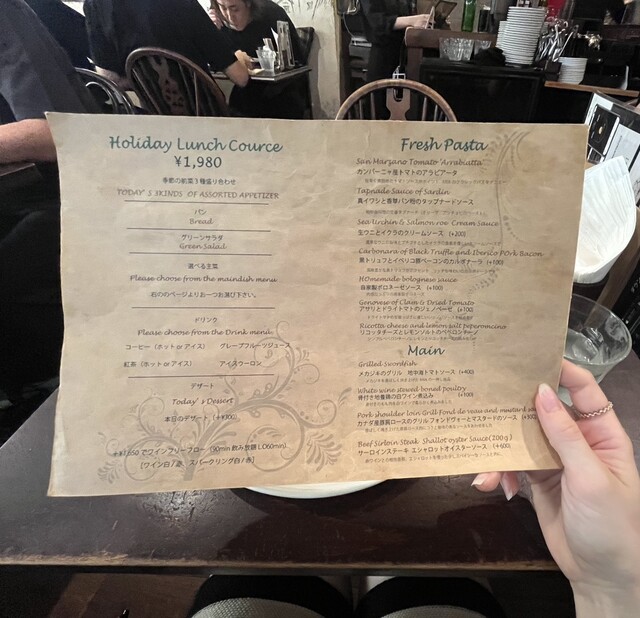 Holiday Lunch Cource
¥1,980
季節の前菜3種盛り合わせ
TODAY'S 3KINDS OF ASSORTED APPETIZER
パン
Bread
グリーンサラダ
Green Salad
選べる主菜
Please choose from the maindish menu
右ののページよりお一つお選び下さい。
ドリンク
Please choose from the Drink menu.
コーヒー(ホット or アイス) グレープフルーツジュース
紅茶(ホット or アイス) アイスウーロン
デザート
Today's Dessert
本日のデザート
でワインフリーフロー(90min 飲み放題 L.O60min)
[ワイン白/赤 スパークリング白/赤]
Fresh Pasta
San Marzano Tomato "Arrabiatta"
カンパーニャ産トマトのアラビアータ
Tapnade Sauce of Sardin
真イワシと香草パン粉のタップナードソース
Sea Urchin & Salmon roe Cream Sauce
生ウニとイクラのクリームソース (+200)
Carbonara of Black Truffle and Iberico POrk Bacon
黒トリュフとイベリコ豚ベーコンのカルボナーラ (+100)
HOmemade bolognese sauce
自家製ボロネーゼソース (+100)
Genovese of Clam & Dried Tomato
アサリとドライトマトのジェノベーゼ (+100)
Ricotta cheese and lemon salt peperoncino
リコッタチーズとレモンソルトのペペロンチーノ
Main
Grilled Swordfish
メカジキのグリル 地中海トマトソース (+400)
White wine stewed boned poultry
骨付き地養鶏の白ワイン煮込み (+100)
Pork shoulder loin Grill Fond de veau and mustard
カナダ産豚肩ロースのグリル フォンドヴォーとマスタードのソース
Beef Sirloin Steak Shallot oyster Sauce (200g)
サーロインステーキ エシャロットオイスターソース (+600)